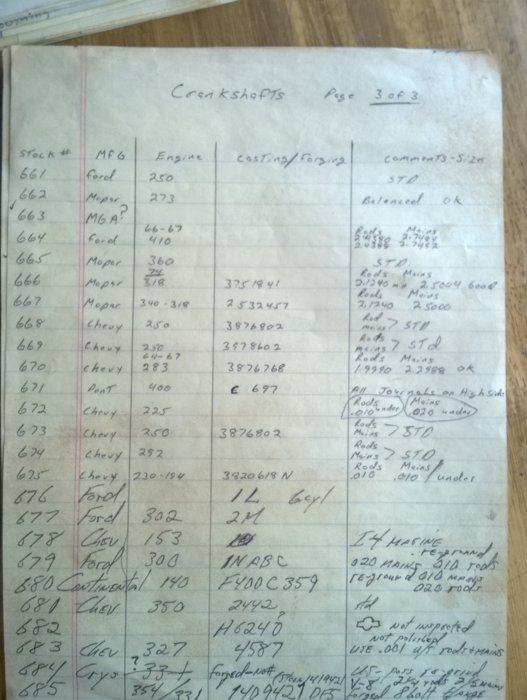 Crankshafts Page 3 of 3
Stock # MFG Engine Casting/Forging Comments-Size
661 Ford 250 STD
662 Mopar 273 Balanced OK
663 MGA?
664 Ford 66-67 410 Rods Mains
665 Mopar 360 STD
666 Mopar 318 3751841 Rods Mains 2.1240 2.5004 Good
667 Mopar 340-318 2532457 Rods Mains 2.1240 2.5000
668 Chevy 250 3876802 Rod mains > STD
669 Chevy 250 3878602 Rods mains > STD
670 Chevy 64-67 283 3876768 Rods Mains 1.9990 2.2988 OK
671 Pont 400 C 697 All Journals on High side
672 Chevy 225 Rods .010 under Mains .020 under
673 Chevy 250 3876802 Rods Mains > STD
674 Chevy 292 Rods Mains > STD
675 Chevy 230-194 3820618 N Rods .010 Mains .010 / under
676 Ford 1L 6cyl
677 Ford 302 2M
678 Chev 153 I4 MARINE
679 Ford 300 1N ABC re-ground 020 MAINS 010 RODS
680 Continental 140 F400C359 re-ground 010 mains 020 RODS
681 Chev 350 2442 std
682 H6240? not inspected not polished
683 Chev 327 4587 USE .001 U/S rods & mains
684 Crys ? 331 Forged-No#
685 354/331